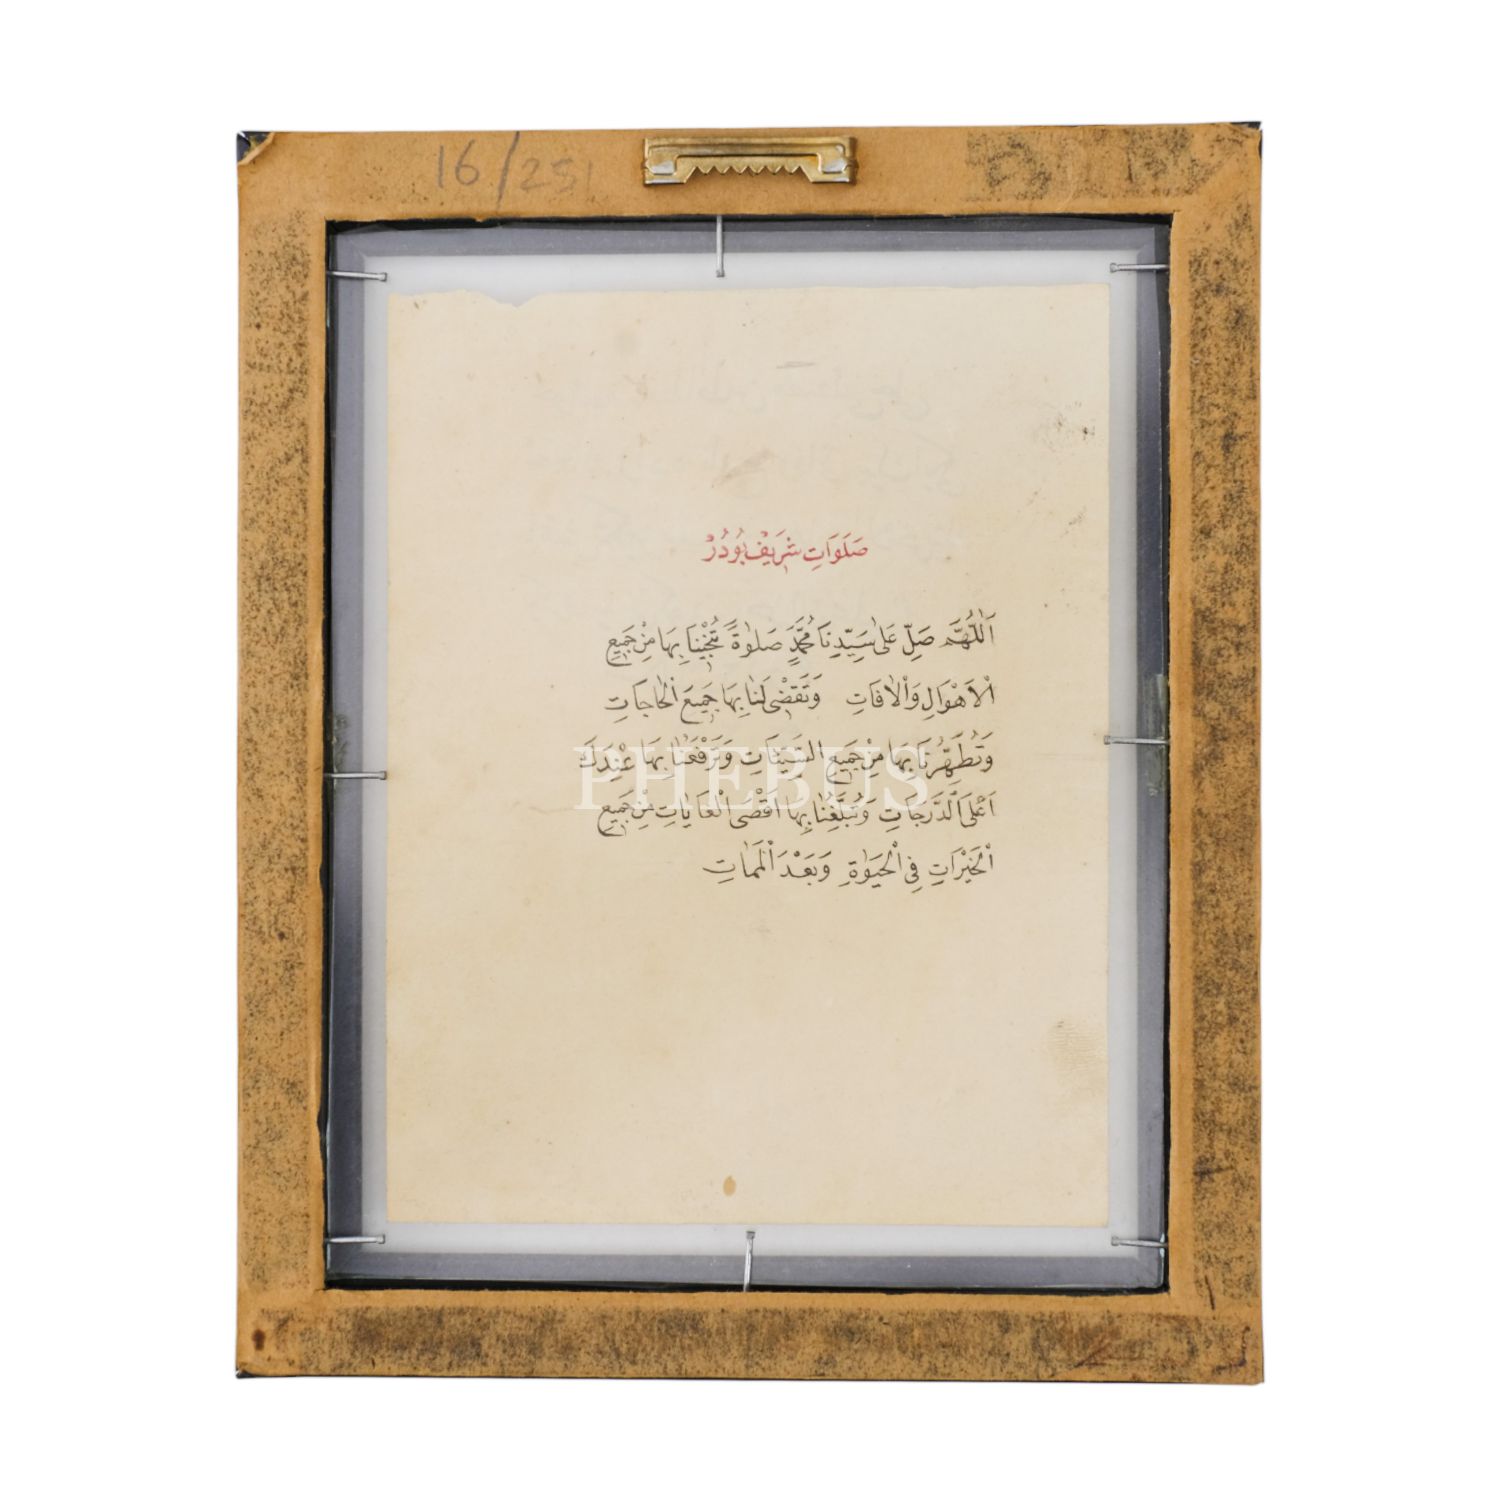 16/251
صَلَوَاتِ شَرِيفْ بُودُرْ
اَللّٰهُمَّ صَلِّ عَلٰى سَيِّدِنَا مُحَمَّدٍ صَلٰوةً تُنْجِينَا بِهَا مِنْ جَمِيعِ
اْلاَهْوَالِ وَاْلاٰفَاتِ وَتَقْضِى لَنَا بِهَا جَمِيعَ اْلحَاجَاتِ
وَتُطَهِّرُنَا بِهَا مِنْ جَمِيعِ السَّيِّئَاتِ وَتَرْفَعُنَا بِهَا عِنْدَكَ
اَعْلَى الدَّرَجَاتِ وَتُبَلِّغُنَا بِهَا اَقْصَى اْلغَايَاتِ مِنْ جَمِيعِ
اْلخَيْرَاتِ فِى اْلحَيٰوةِ وَبَعْدَ اْلمَمَاتِ
PHEBUS